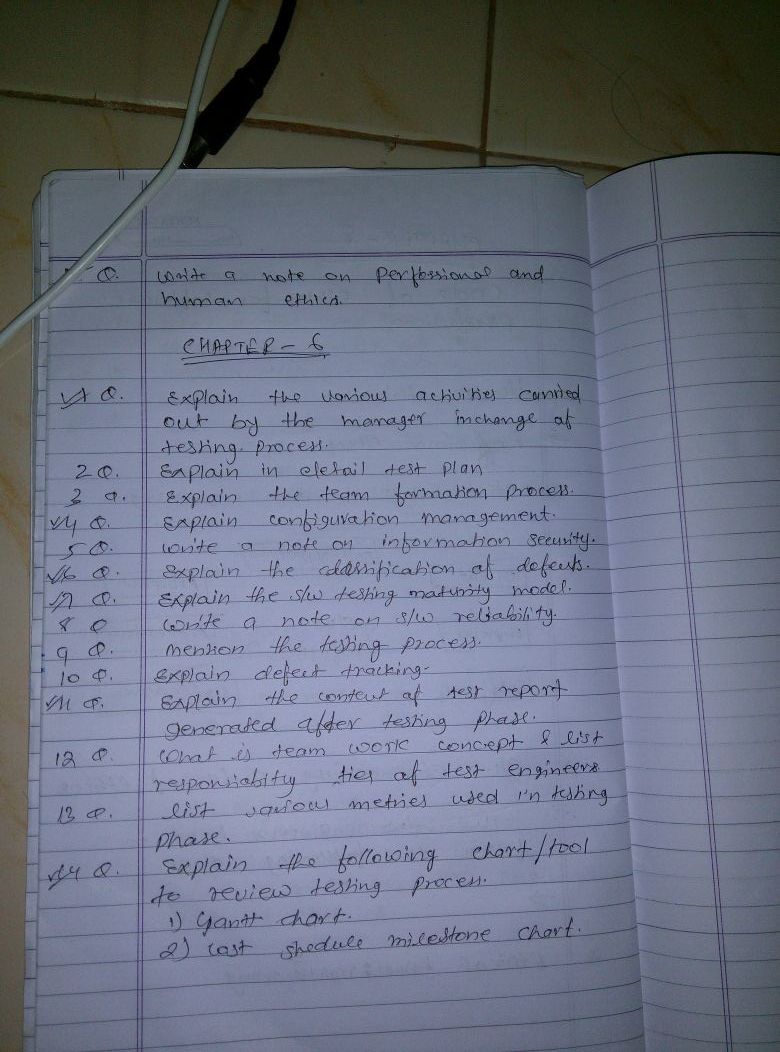 Q. Write a note on Perfessional and
human ethics.
CHAPTER - 6
1 Q. Explain the various activities carried
out by the manager incharge of
testing process.
2 Q. Explain in detail test plan
3 Q. Explain the team formation process.
4 Q. Explain configuration management.
5 Q. Write a note on information security.
6 Q. Explain the classification of defects.
7 Q. Explain the s/w testing maturity model.
8 Q Write a note on s/w reliability.
9 Q. mention the testing process.
10 Q. Explain defect tracking.
11 Q. Explain the content of test report
generated after testing phase.
12 Q. What is team work concept & list
responsiability ties of test engineers
13 Q. list various metries used in testing
phase.
14 Q. Explain the following chart/tool
to review testing process.
1) Gantt chart.
2) Cost shedule milestone chart.